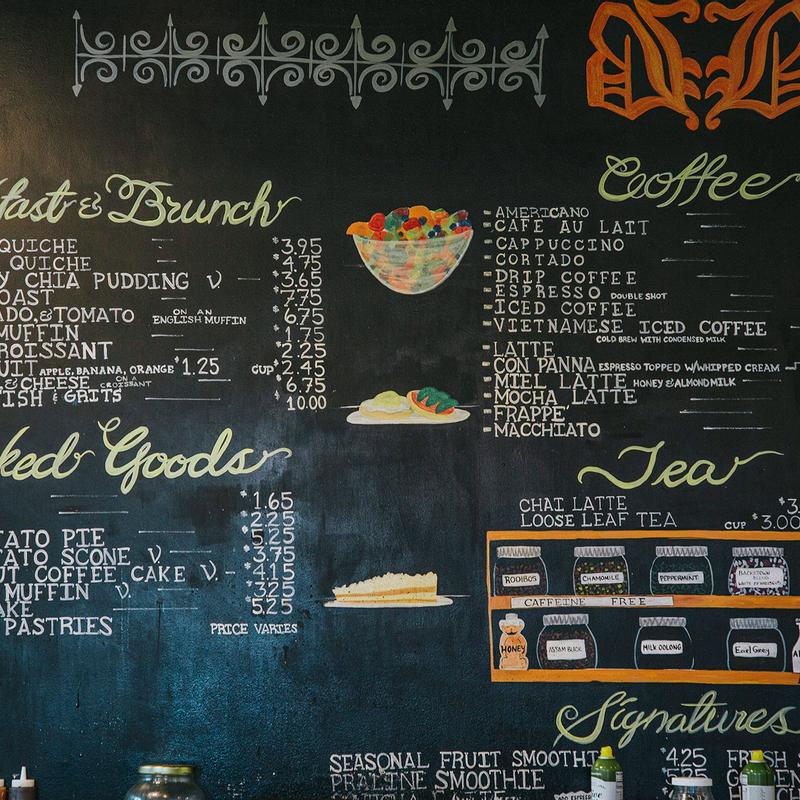 fast & Brunch
QUICHE $3.95
QUICHE $4.75
Y CHIA PUDDING V. $3.65
OAST $7.75
ADO, & TOMATO ON AN ENGLISH MUFFIN $6.75
MUFFIN $1.75
ROISSANT $2.25
UIT APPLE, BANANA, ORANGE $1.25 CUP $2.45
, & CHEESE ON A CROISSANT $6.75
ISH & GRITS $10.00
ked Goods
$1.65
$2.25
TATO PIE $5.25
TATO SCONE V. $3.75
UT COFFEE CAKE V. $4.15
MUFFIN V. $3.25
AKE $5.25
PASTRIES PRICE VARIES
Coffee
AMERICANO
CAFE AU LAIT
CAPPUCCINO
CORTADO
DRIP COFFEE
ESPRESSO DOUBLE SHOT
ICED COFFEE
VIETNAMESE ICED COFFEE
COLD BREW WITH CONDENSED MILK
LATTE
CON PANNA ESPRESSO TOPPED W/WHIPPED CREAM
MIEL LATTE HONEY & ALMOND MILK
MOCHA LATTE
FRAPPE'
MACCHIATO
Tea
CHAI LATTE $3.
LOOSE LEAF TEA CUP $3.00
ROOIBOS
CHAMOMILE
PEPPERMINT
CAFFEINE FREE
HONEY
ASSAM BLACK
MILK OOLONG
Earl Grey
Signatures
SEASONAL FRUIT SMOOTHI $4.25 FRESH
PRALINE SMOOTHIE $5.25